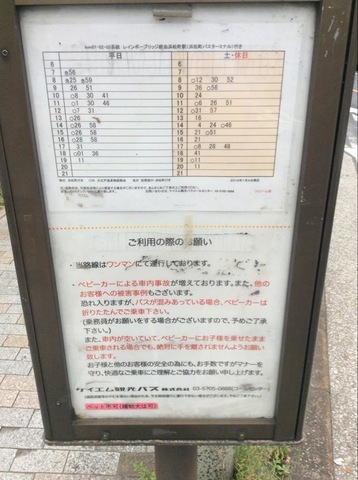 平日 土・休日
6 6
7 ◎56 7
8 ◎25 ◎59 8 ○12 30 52
9 26 51 9 36 ○56
10 ○8 30 41 10 24
11 ○1 30 46 11 ○6 26 51
12 ○7 31 12 ○31 57
13 ○26 13
14 ○26 58 14 4 24 ○46
15 ○26 58 15 21 ○51
16 ○28 58 16
17 17 ○8 28 48
18 ○01 36 18 41
19 ○11 19 ○11
20 20
21 21
ご利用の際のお願い
・当路線はワンマンにて運行しております。
・ベビーカーによる車内事故が増えております。また、他の
お客様への被害事例もございます。
恐れ入りますが、バスが混みあっている場合、ベビーカーは
折りたたんでご乗車下さい。
(乗務員がお願いをする場合がございますので、予めご了承
下さい。)
また、車内が空いていて、ベビーカーにお子様を乗せたまま
ご乗車される場合でも、絶対に手を離されませんようお願い
致します。
お子様と他のお客様の安全の為にも、お手数ですがマナーを
守り、快適なご乗車にご理解とご協力をお願い申し上げます。
ケイエム観光バス 株式会社
ペット不可(補助犬は可)